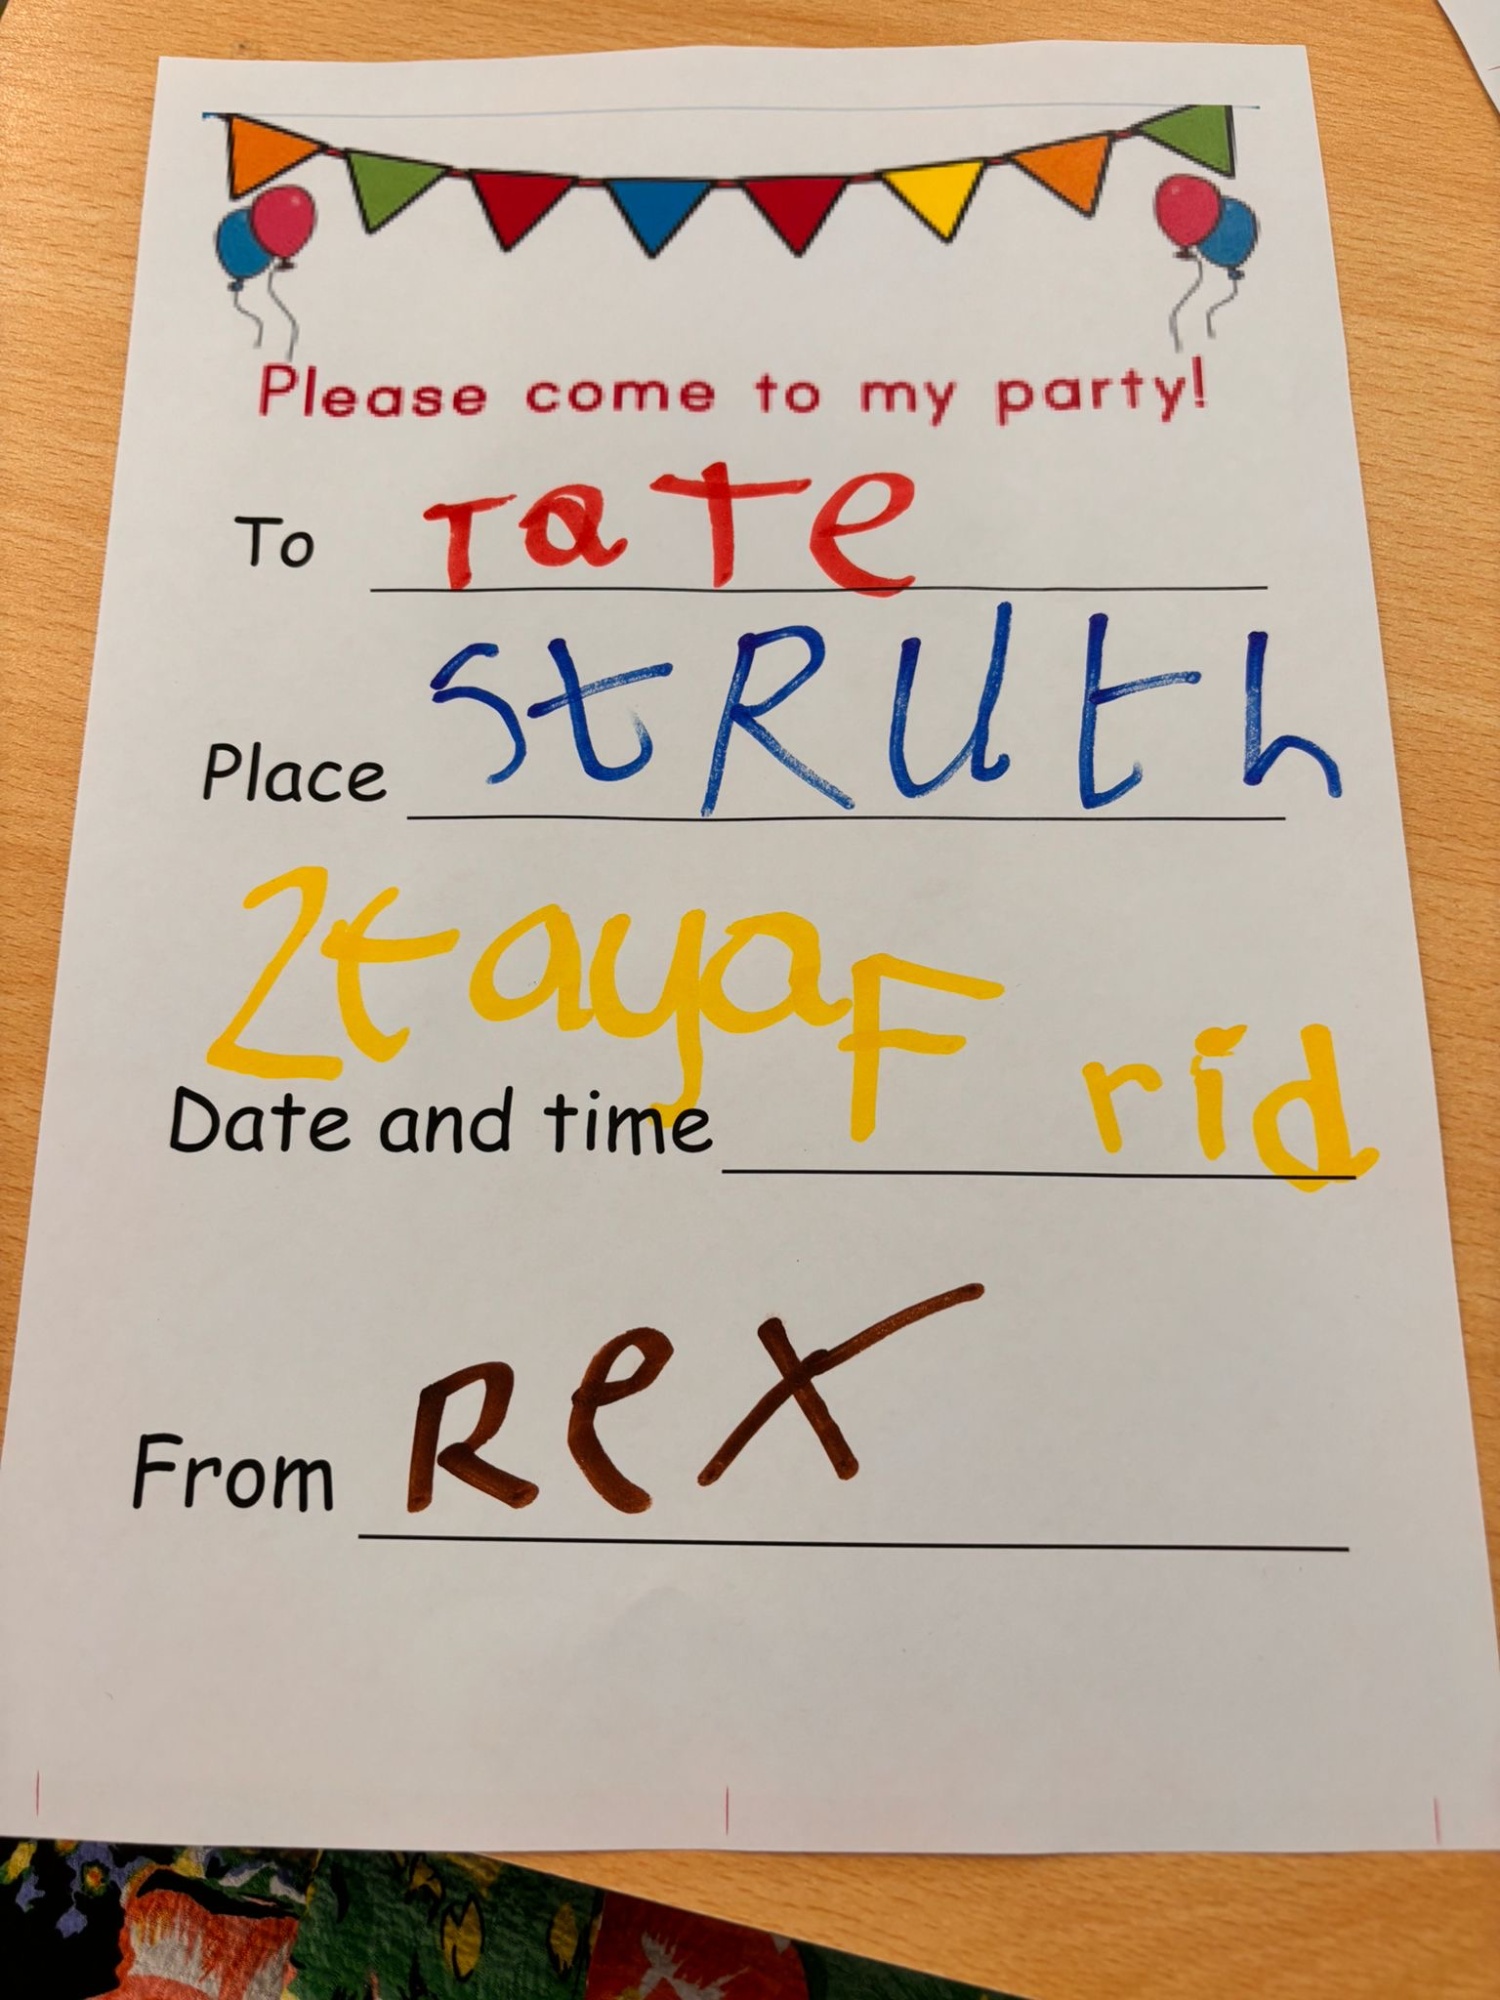 Please come to my party!
To Tate
Place StRUth
2tayaF rid
Date and time
From Rex